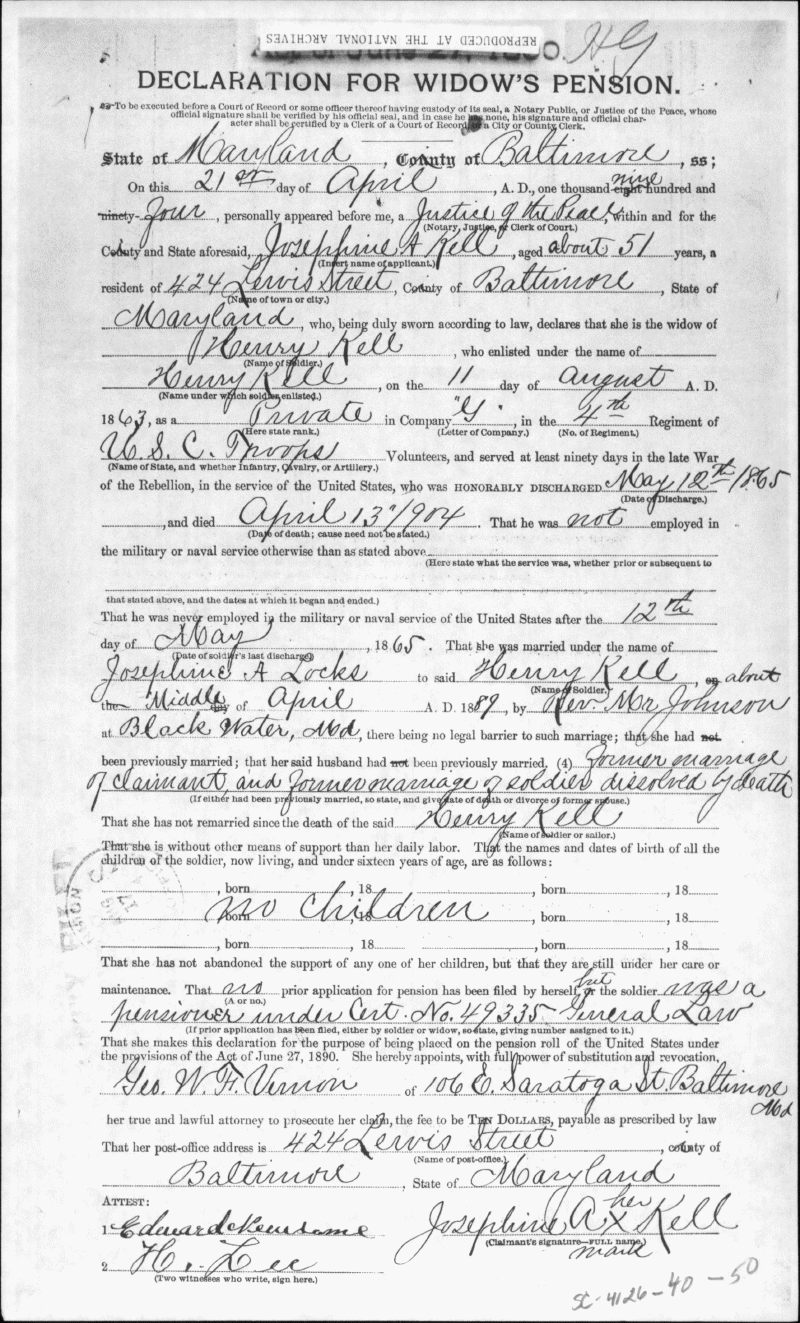 REPRODUCED AT THE NATIONAL ARCHIVES
H G
DECLARATION FOR WIDOW'S PENSION.
To be executed before a Court of Record or some officer thereof having custody of its seal, a Notary Public, or Justice of the Peace, whose
official signature shall be verified by his official seal, and in case he has none, his signature and official char-
acter shall be certified by a Clerk of a Court of Record, a City or County Clerk.
State of Maryland, County of Baltimore, ss;
On this 21st day of April, A. D., one thousand eight nine hundred and
ninety- four, personally appeared before me, a Justice of the Peace, within and for the
(Notary, Justice, or Clerk of Court.)
County and State aforesaid, Josephine A Kell, aged about 51 years, a
(Insert name of applicant.)
resident of 424 Lewis Street, County of Baltimore, State of
(Name of town or city.)
Maryland, who, being duly sworn according to law, declares that she is the widow of
Henry Kell, who enlisted under the name of
(Name of Soldier.)
Henry Kell, on the 11 day of August A. D.
(Name under which soldier enlisted.)
1863, as a Private in Company "G", in the 4th Regiment of
(Here state rank.) (Letter of Company.) (No. of Regiment.)
U. S. C. Troops Volunteers, and served at least ninety days in the late War
(Name of State, and whether Infantry, Cavalry, or Artillery.)
of the Rebellion, in the service of the United States, who was HONORABLY DISCHARGED May 12th 1865
(Date of Discharge.)
, and died April 13" 1904. That he was not employed in
(Date of death; cause need not be stated.)
the military or naval service otherwise than as stated above
(Here state what the service was, whether prior or subsequent to
that stated above, and the dates at which it began and ended.)
That he was never employed in the military or naval service of the United States after the 12th
day of May, 1865. That she was married under the name of
(Date of soldier's last discharge)
Josephine A Locks to said Henry Kell, on about
(Name of Soldier.)
the Middle of April A. D. 1889, by Rev. Mr Johnson
at Black Water, Md, there being no legal barrier to such marriage; that she had not
been previously married; that her said husband had not been previously married. (4) Former marriage
of claimant, and former marriage of soldier dissolved by death
(If either had been previously married, so state, and give date of death or divorce of former spouse.)
That she has not remarried since the death of the said Henry Kell
(Name of soldier or sailor.)
That she is without other means of support than her daily labor. That the names and dates of birth of all the
children of the soldier, now living, and under sixteen years of age, are as follows:
, born , 18 , born , 18
no children born , 18 , born , 18
, born , 18 , born , 18
That she has not abandoned the support of any one of her children, but that they are still under her care or
maintenance. That no prior application for pension has been filed by herself, or but the soldier was a
(A or no.)
pensioner under Cert. No. 49335 General Law
(If prior application has been filed, either by soldier or widow, so state, giving number assigned to it.)
That she makes this declaration for the purpose of being placed on the pension roll of the United States under
the provisions of the Act of June 27, 1890. She hereby appoints, with full power of substitution and revocation,
Geo. W. F. Vernon of 106 E. Saratoga St. Baltimore Md
her true and lawful attorney to prosecute her claim, the fee to be TEN DOLLARS, payable as prescribed by law
That her post-office address is 424 Lewis Street, county of
(Name of post-office.)
Baltimore, State of Maryland
ATTEST:
1 Edward
2 H. Lee
(Two witnesses who write, sign here.)
Josephine A her x mark Kell
(Claimant's signature—FULL name.)
SC-4126-40-50